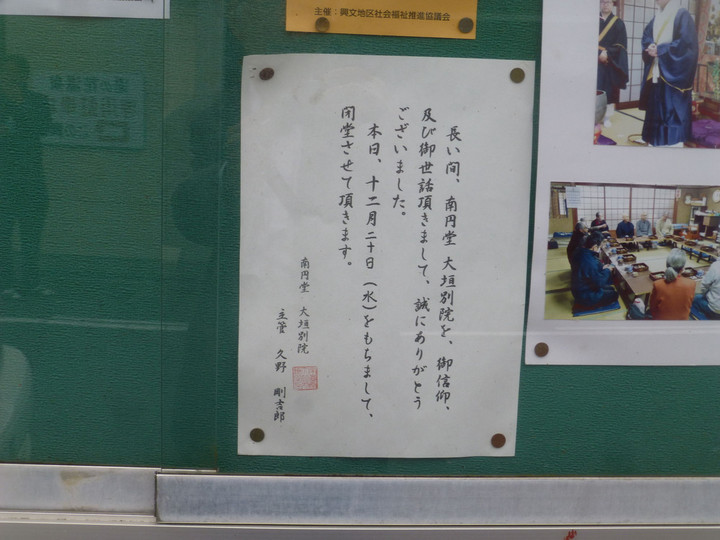 主催:興文地区社会福祉推進協議会
長い間、南円堂 大垣別院を、御信仰、
及び御世話頂きまして、誠にありがとう
ございました。
本日、十二月二十日(水)をもちまして、
閉堂させて頂きます。
南円堂 大垣別院
主管 久野 剛吉郎